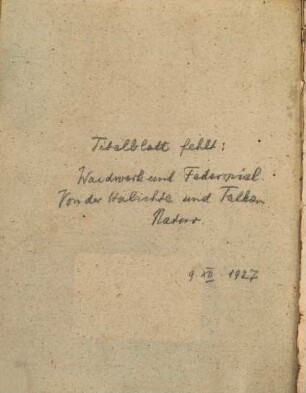 Titelblatt fehlt:
Waidwerk und Federspiel.
Von der Häbichte und Falken
Natur.
9 XII 1927